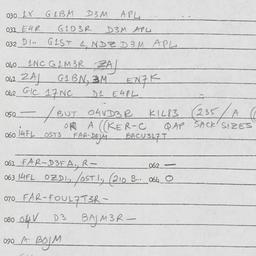 030 1X G1BM D3M APL
031 E4R G1D3R D3M APL
032 D1.. G1ST 1, NDZ D3M APL
040 1NC G1M3R ZAJ
041 ZAJ G1BN, 3M EN7K
042 G1C 17NC D1 E4PL
050 — / BUT 04VD3R K1L83 (235 / A
OR A ((KER-C QAP SACK SIZES
060 14FL OST3 FAR-DEJM BACU3L7T
061 FAR-D3FA, R— 062 —
063 14FL OZD1, /OST.1, (210 B... 064 O
070 FAR-FOUL7T3R-
080 04V D3 BAJM3R—
090 A BOJM